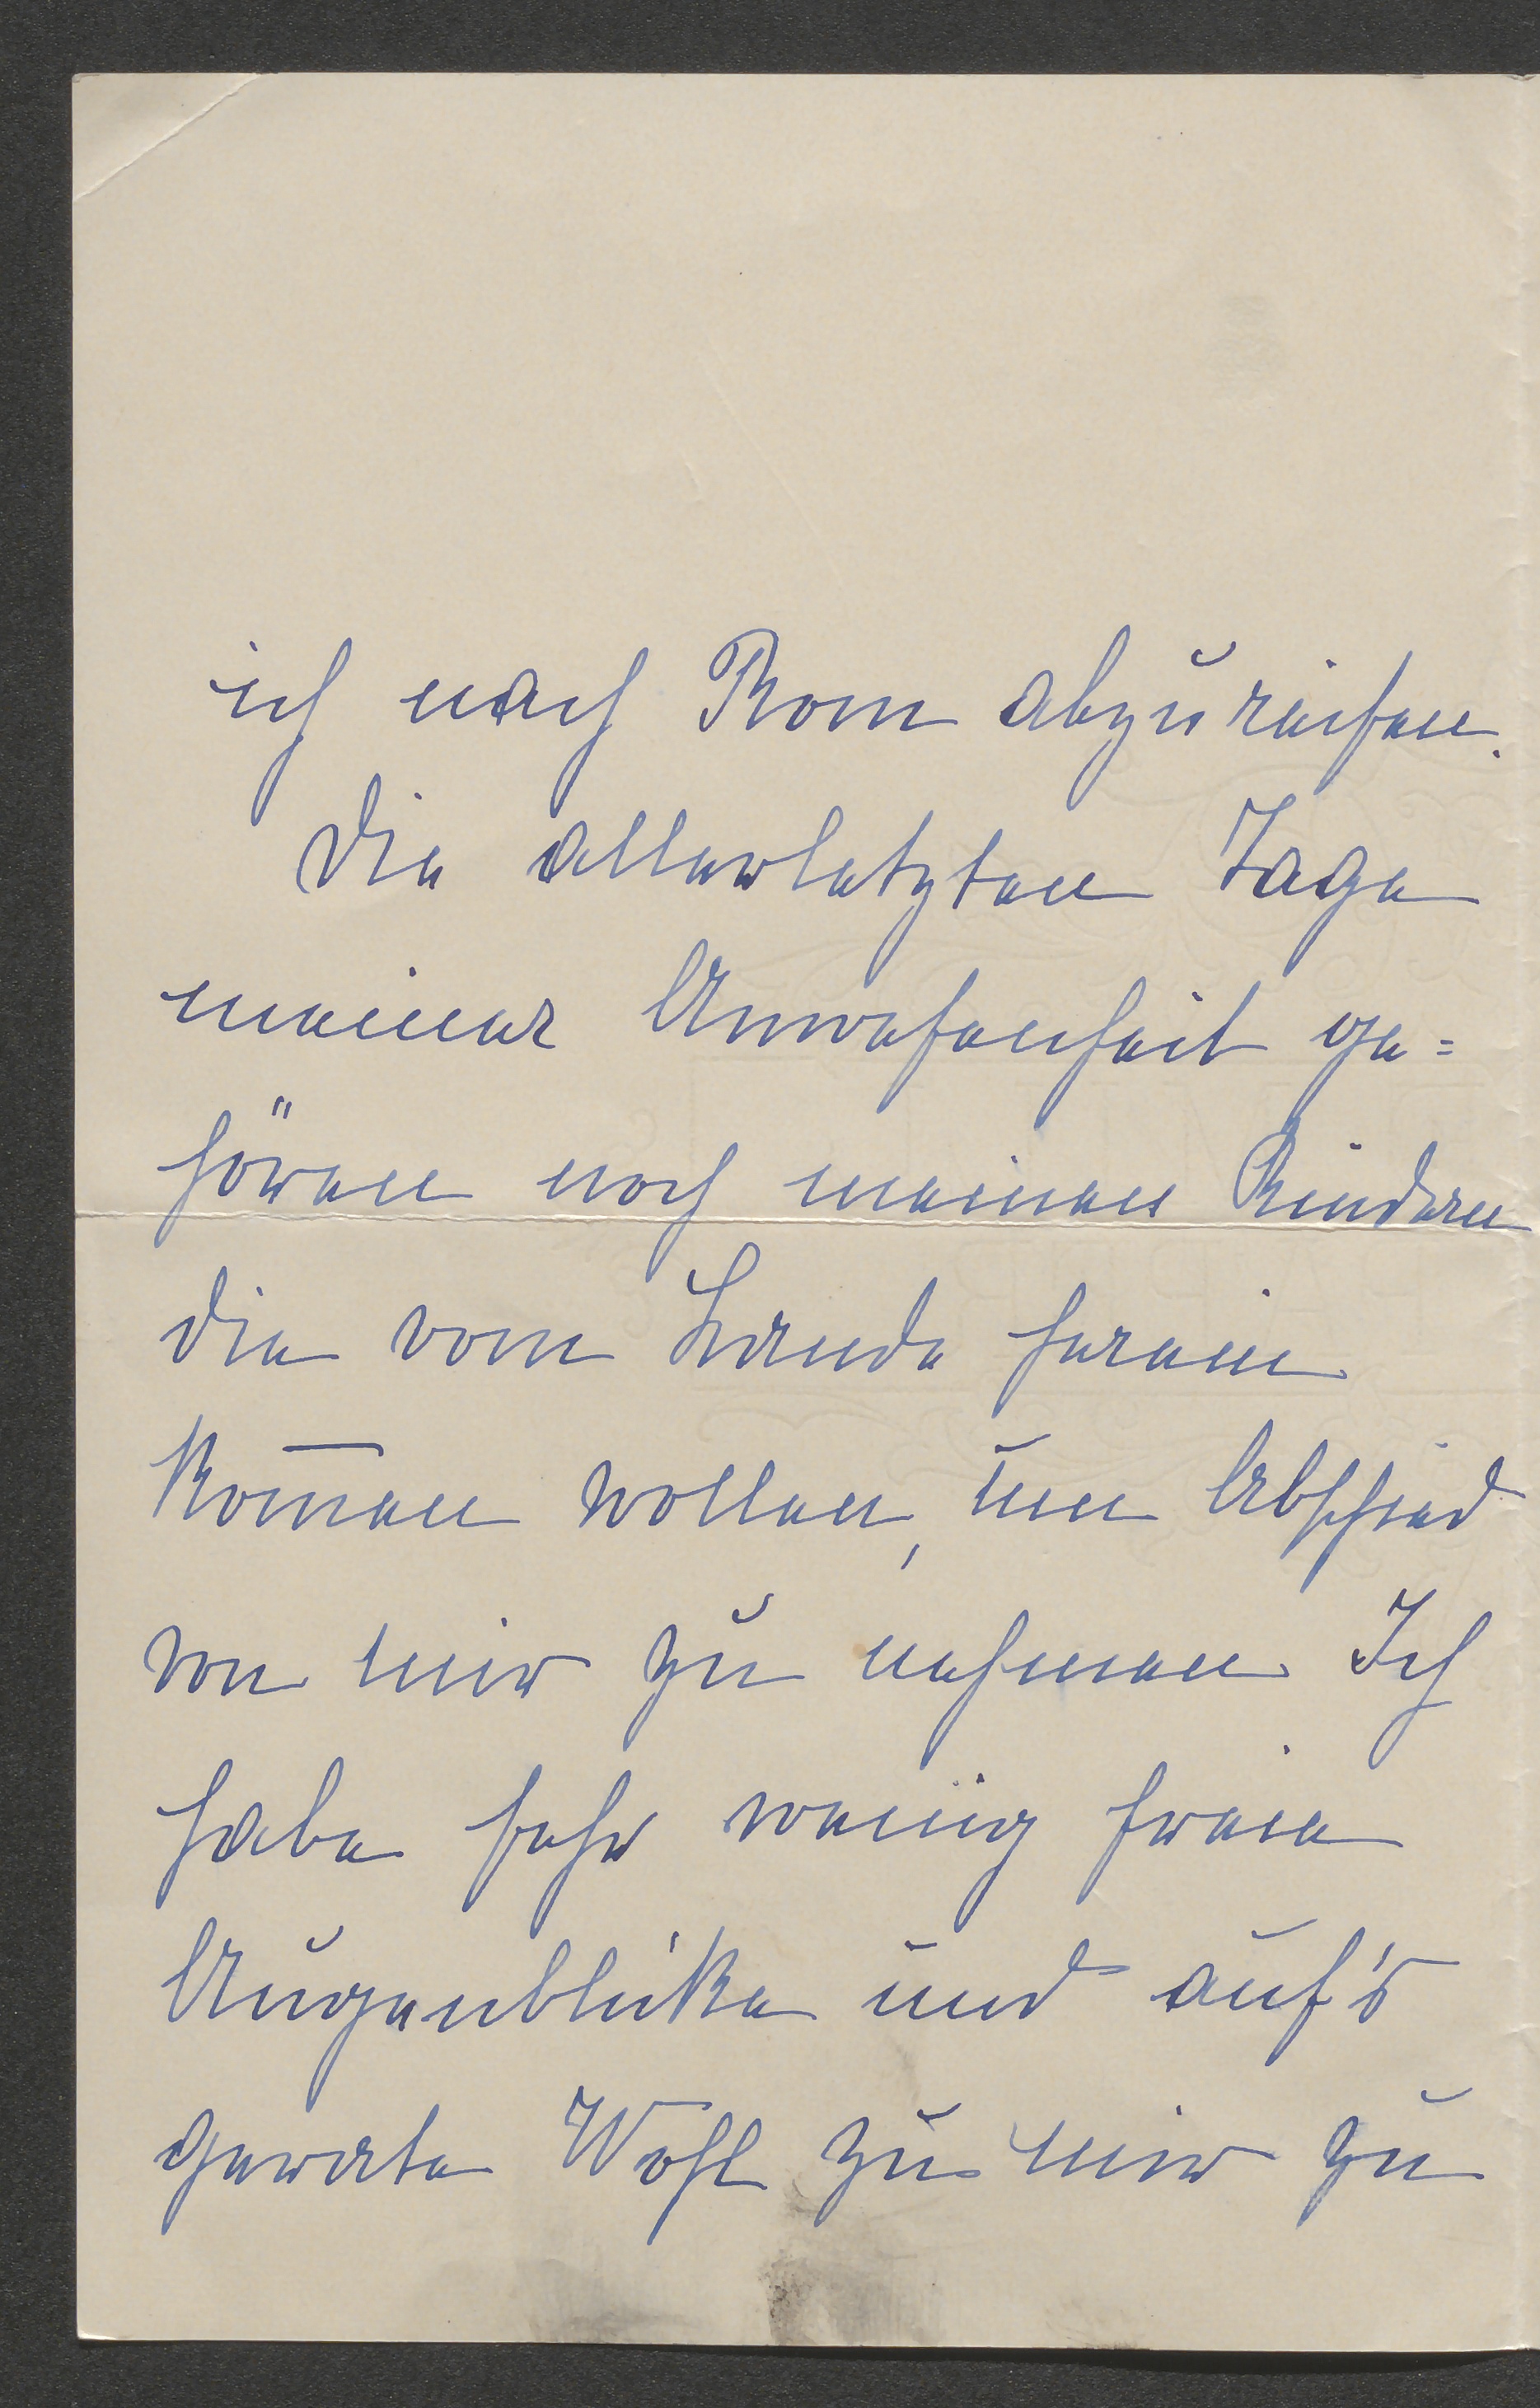 ich nach Rom abzureisen.
Die allerletzten Tage
meiner Anwesenheit ge=
hören noch meinen Kindern
die vom Lande herein
kom̄en wollen, um Abschied
von mir zu nehmen. Ich
habe sehr wenig freie
Augenblicke und auf's
gerate Wohl zu mir zu